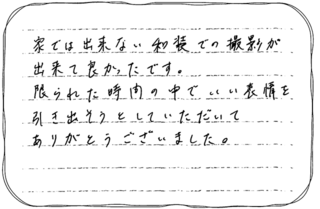 家では出来ない和装での撮影が
出来て良かったです。
限られた時間の中でいい表情を
引き出そうとしていただいて
ありがとうございました。